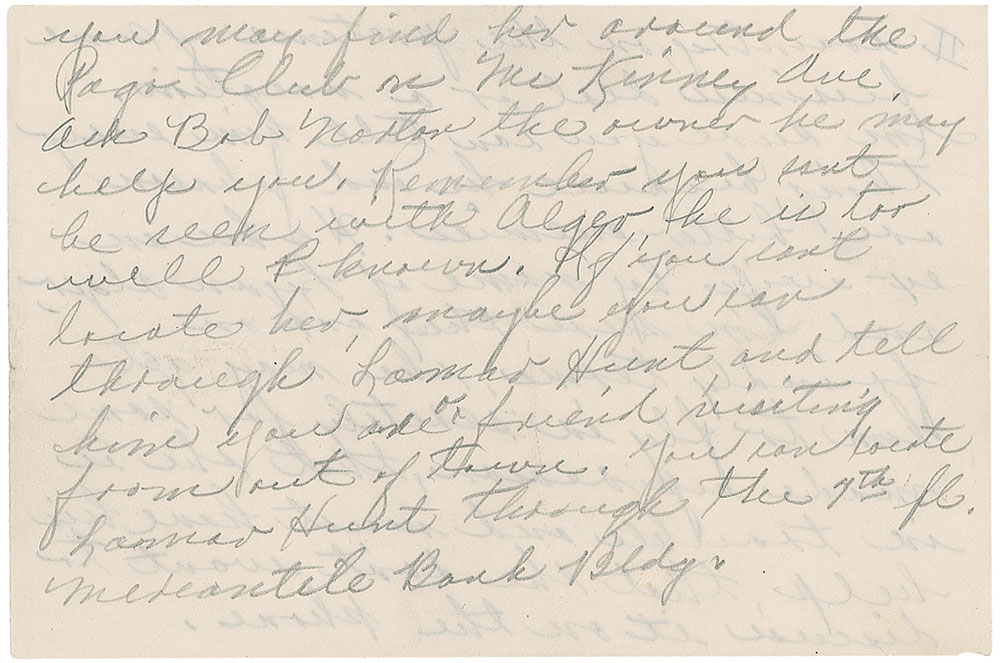 you may find her around the
Pago Club on McKinney Ave.
Ask Bob Norton the owner he may
help you. Remember you not
be seen with Alger, he is too
well P known. If you cant
locate her, maybe you can
through Lamar Hunt and tell
him you are or friend visiting
from out of town. You can locate
Lamar Hunt through the 7th fl.
Mercantile Bank Bldg.